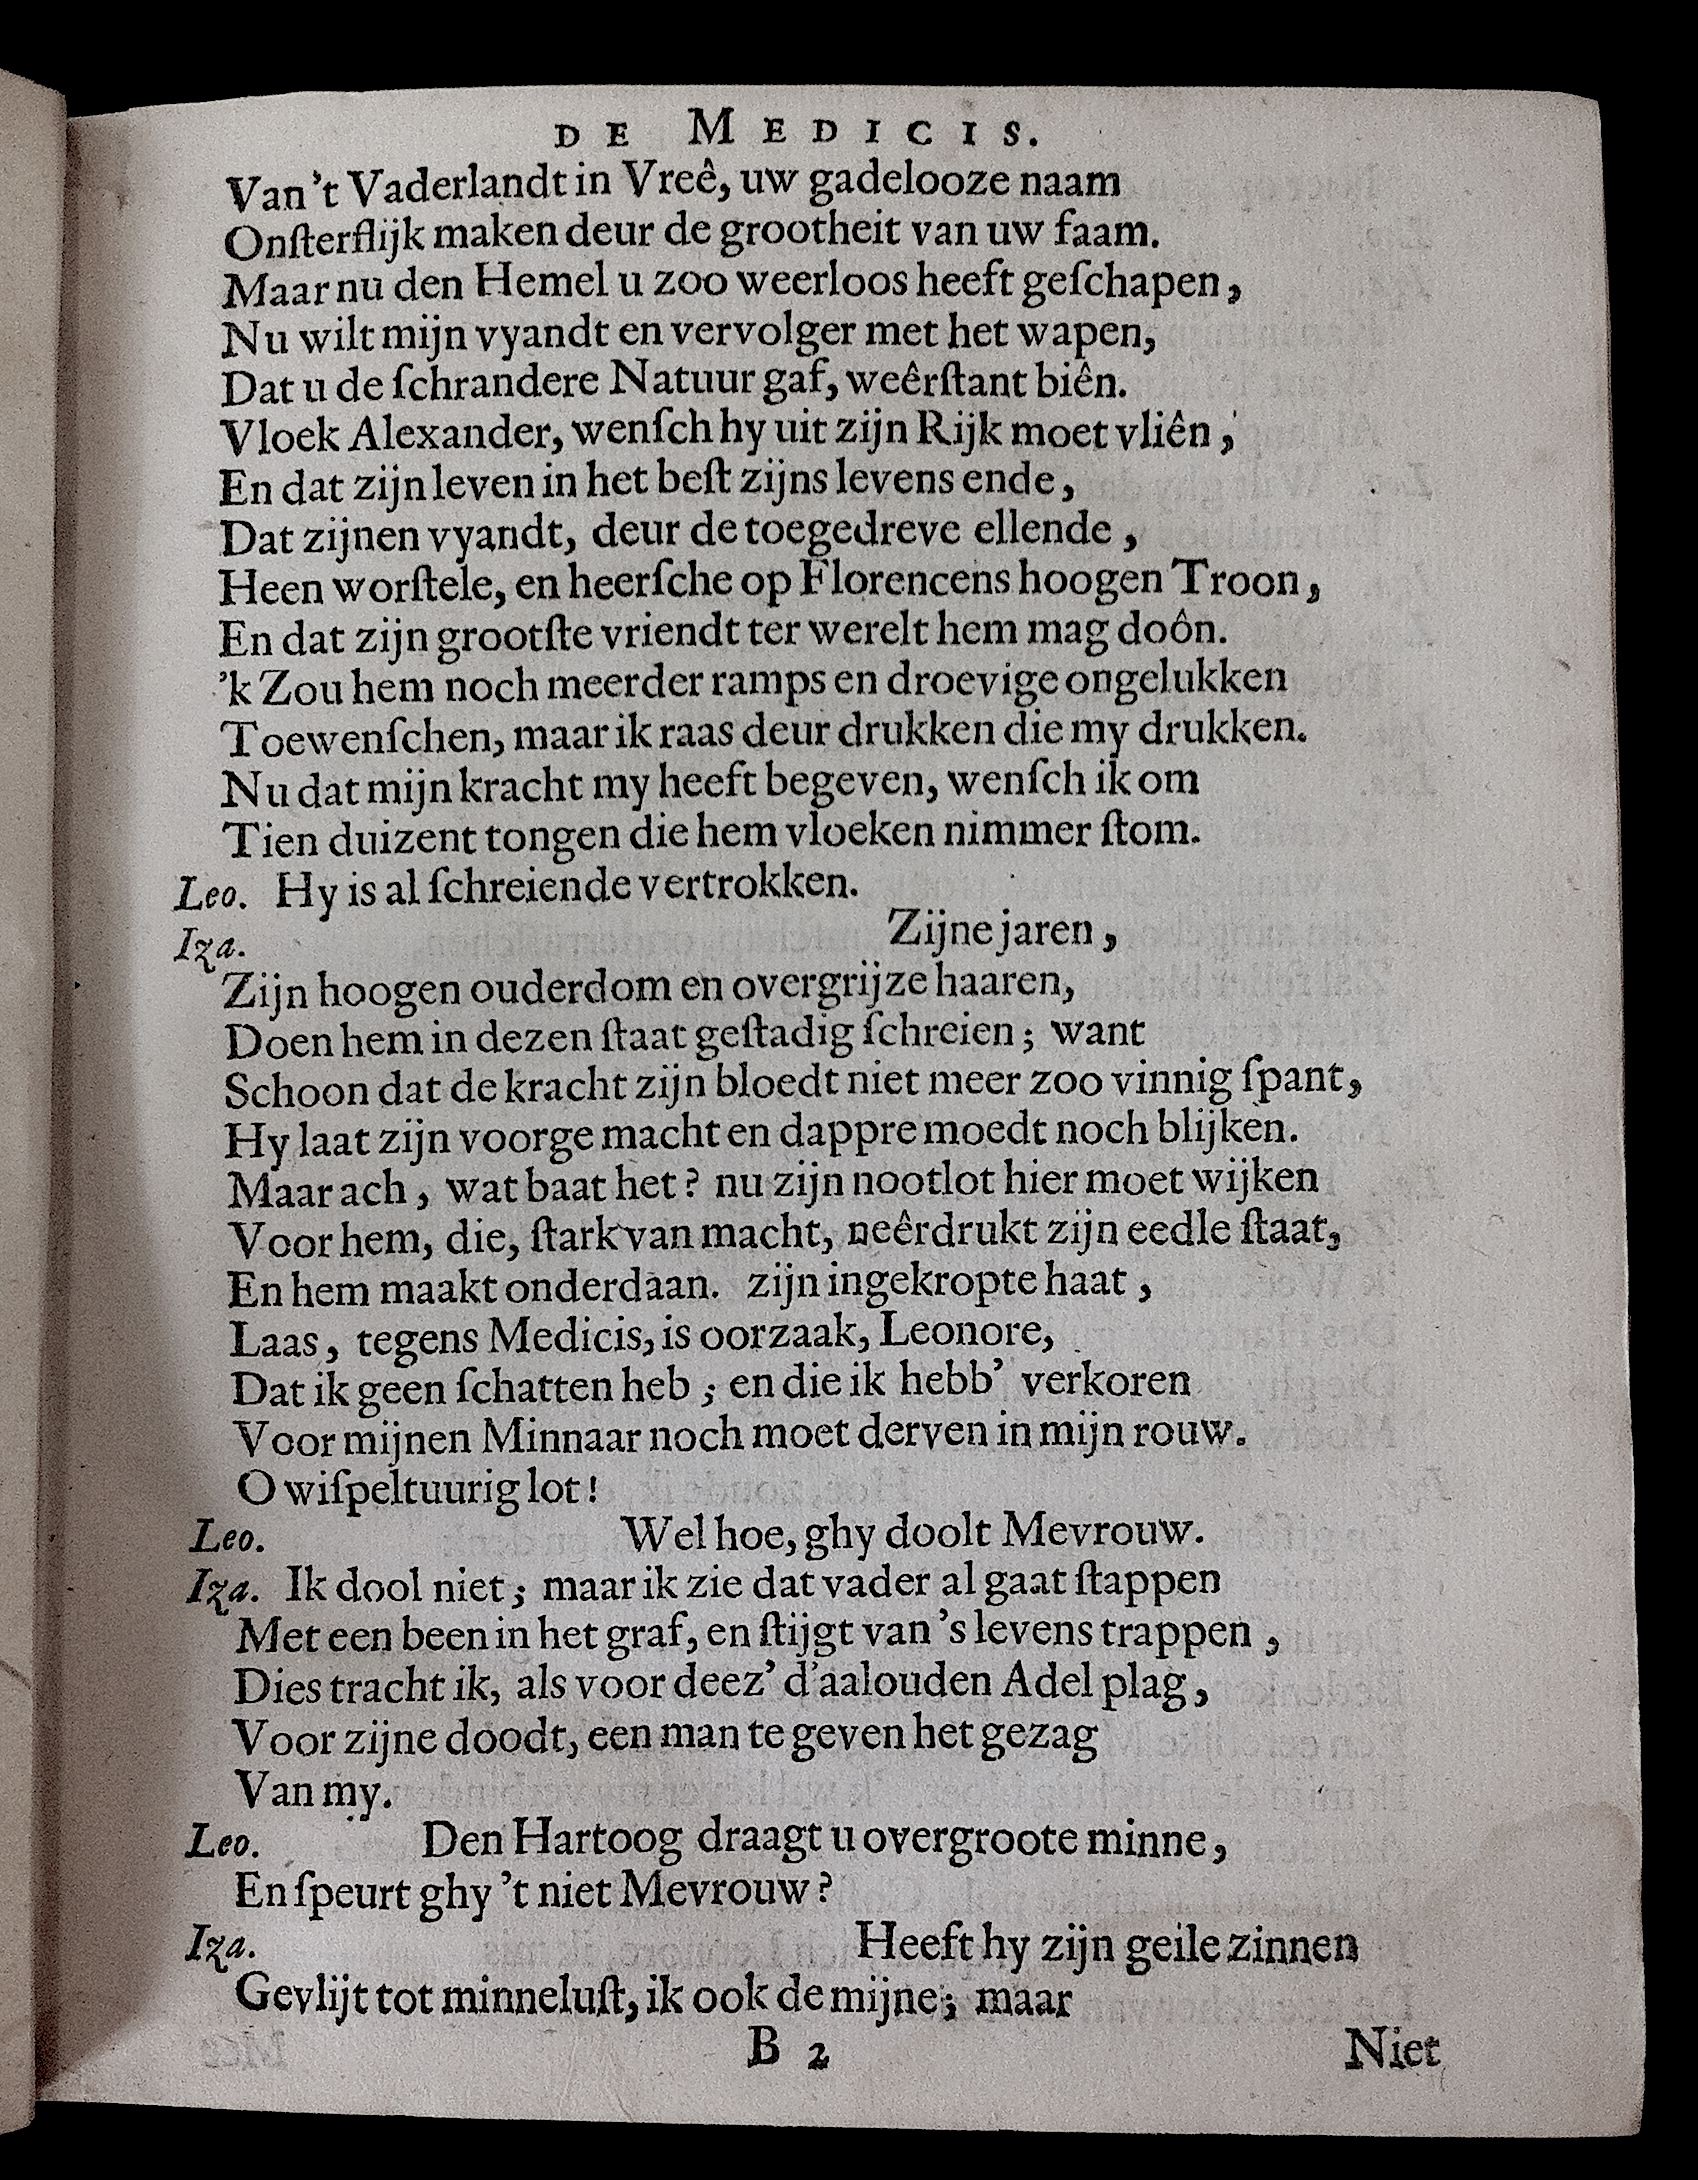 DE MEDICIS.
Van 't Vaderlandt in Vreê, uw gadelooze naam
Onſterflijk maken deur de grootheit van uw faam.
Maar nu den Hemel u zoo weerloos heeft geſchapen,
Nu wilt mijn vyandt en vervolger met het wapen,
Dat u de ſchrandere Natuur gaf, weêrſtant biên.
Vloek Alexander, wenſch hy uit zijn Rijk moet vliên,
En dat zijn leven in het beſt zijns levens ende,
Dat zijnen vyandt, deur de toegedreve ellende,
Heen worſtele, en heerſche op Florencens hoogen Troon,
En dat zijn grootſte vriendt ter werelt hem mag doôn.
'k Zou hem noch meerder ramps en droevige ongelukken
Toewenſchen, maar ik raas deur drukken die my drukken.
Nu dat mijn kracht my heeft begeven, wenſch ik om
Tien duizent tongen die hem vloeken nimmer ſtom.
Leo. Hy is al ſchreiende vertrokken.
Iza. Zijne jaren,
Zijn hoogen ouderdom en overgrijze haaren,
Doen hem in dezen ſtaat geſtadig ſchreien; want
Schoon dat de kracht zijn bloedt niet meer zoo vinnig ſpant,
Hy laat zijn voorge macht en dappre moedt noch blijken.
Maar ach, wat baat het? nu zijn nootlot hier moet wijken
Voor hem, die, ſtark van macht, neêrdrukt zijn eedle ſtaat,
En hem maakt onderdaan. zijn ingekropte haat,
Laas, tegens Medicis, is oorzaak, Leonore,
Dat ik geen ſchatten heb; en die ik hebb' verkoren
Voor mijnen Minnaar noch moet derven in mijn rouw.
O wiſpeltuurig lot!
Leo. Wel hoe, ghy doolt Mevrouw.
Iza. Ik dool niet; maar ik zie dat vader al gaat ſtappen
Met een been in het graf, en ſtijgt van 's levens trappen,
Dies tracht ik, als voor deez' d'aalouden Adel plag,
Voor zijne doodt, een man te geven het gezag
Van my.
Leo. Den Hartoog draagt u overgroote minne,
En ſpeurt ghy 't niet Mevrouw?
Iza. Heeft hy zijn geile zinnen
Gevlijt tot minneluſt, ik ook de mijne; maar
B 2 Niet